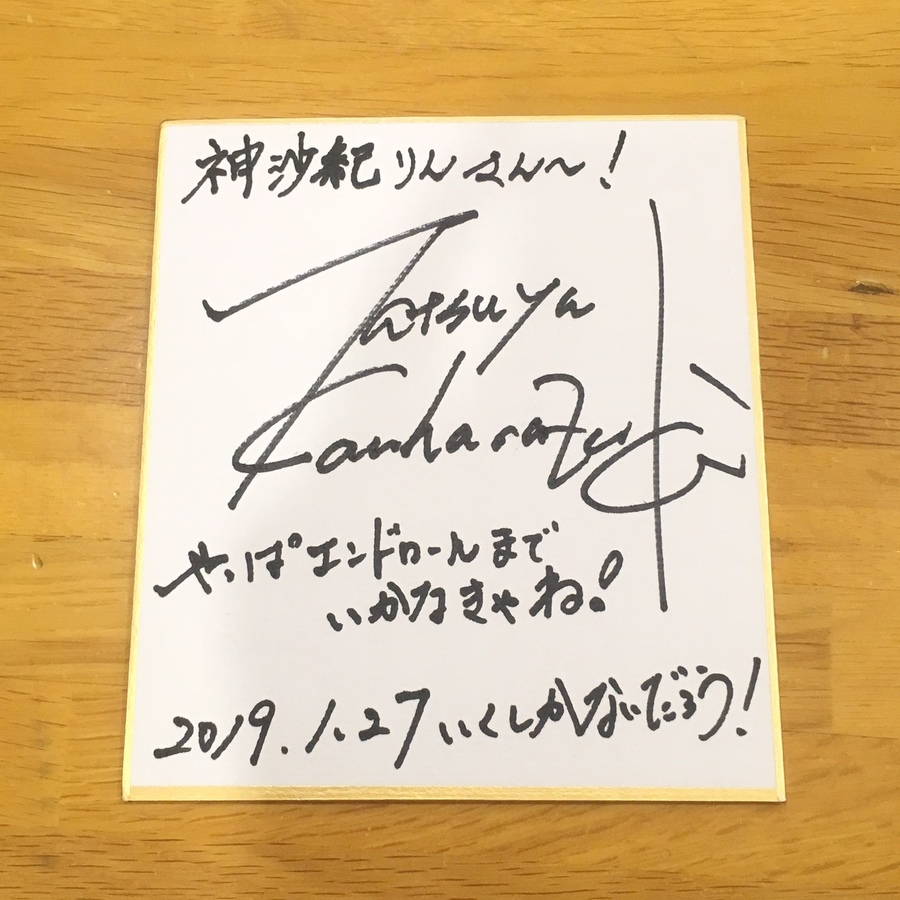 神沙紀りんさん〜!
Tatsuya
Kawharazuki
やっぱエンドロールまで
いかなきゃね!
2019.1.27いくしかないだろう!